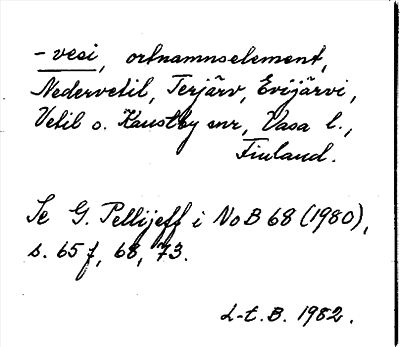 -vesi, ortnamnselement,
Nedervetil, Terjärv, Evijärvi,
Vetil o. Kaustby snr, Vasa l.,
Finland.
Se G. Pellijeff i NoB 68 (1980),
s. 65 f, 68, 73.
L-t. B. 1982.